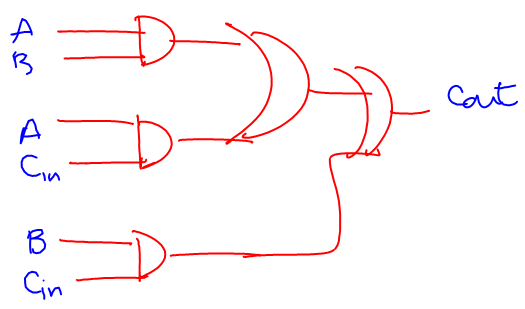 A
B
A
Cin
B
Cin
Cout